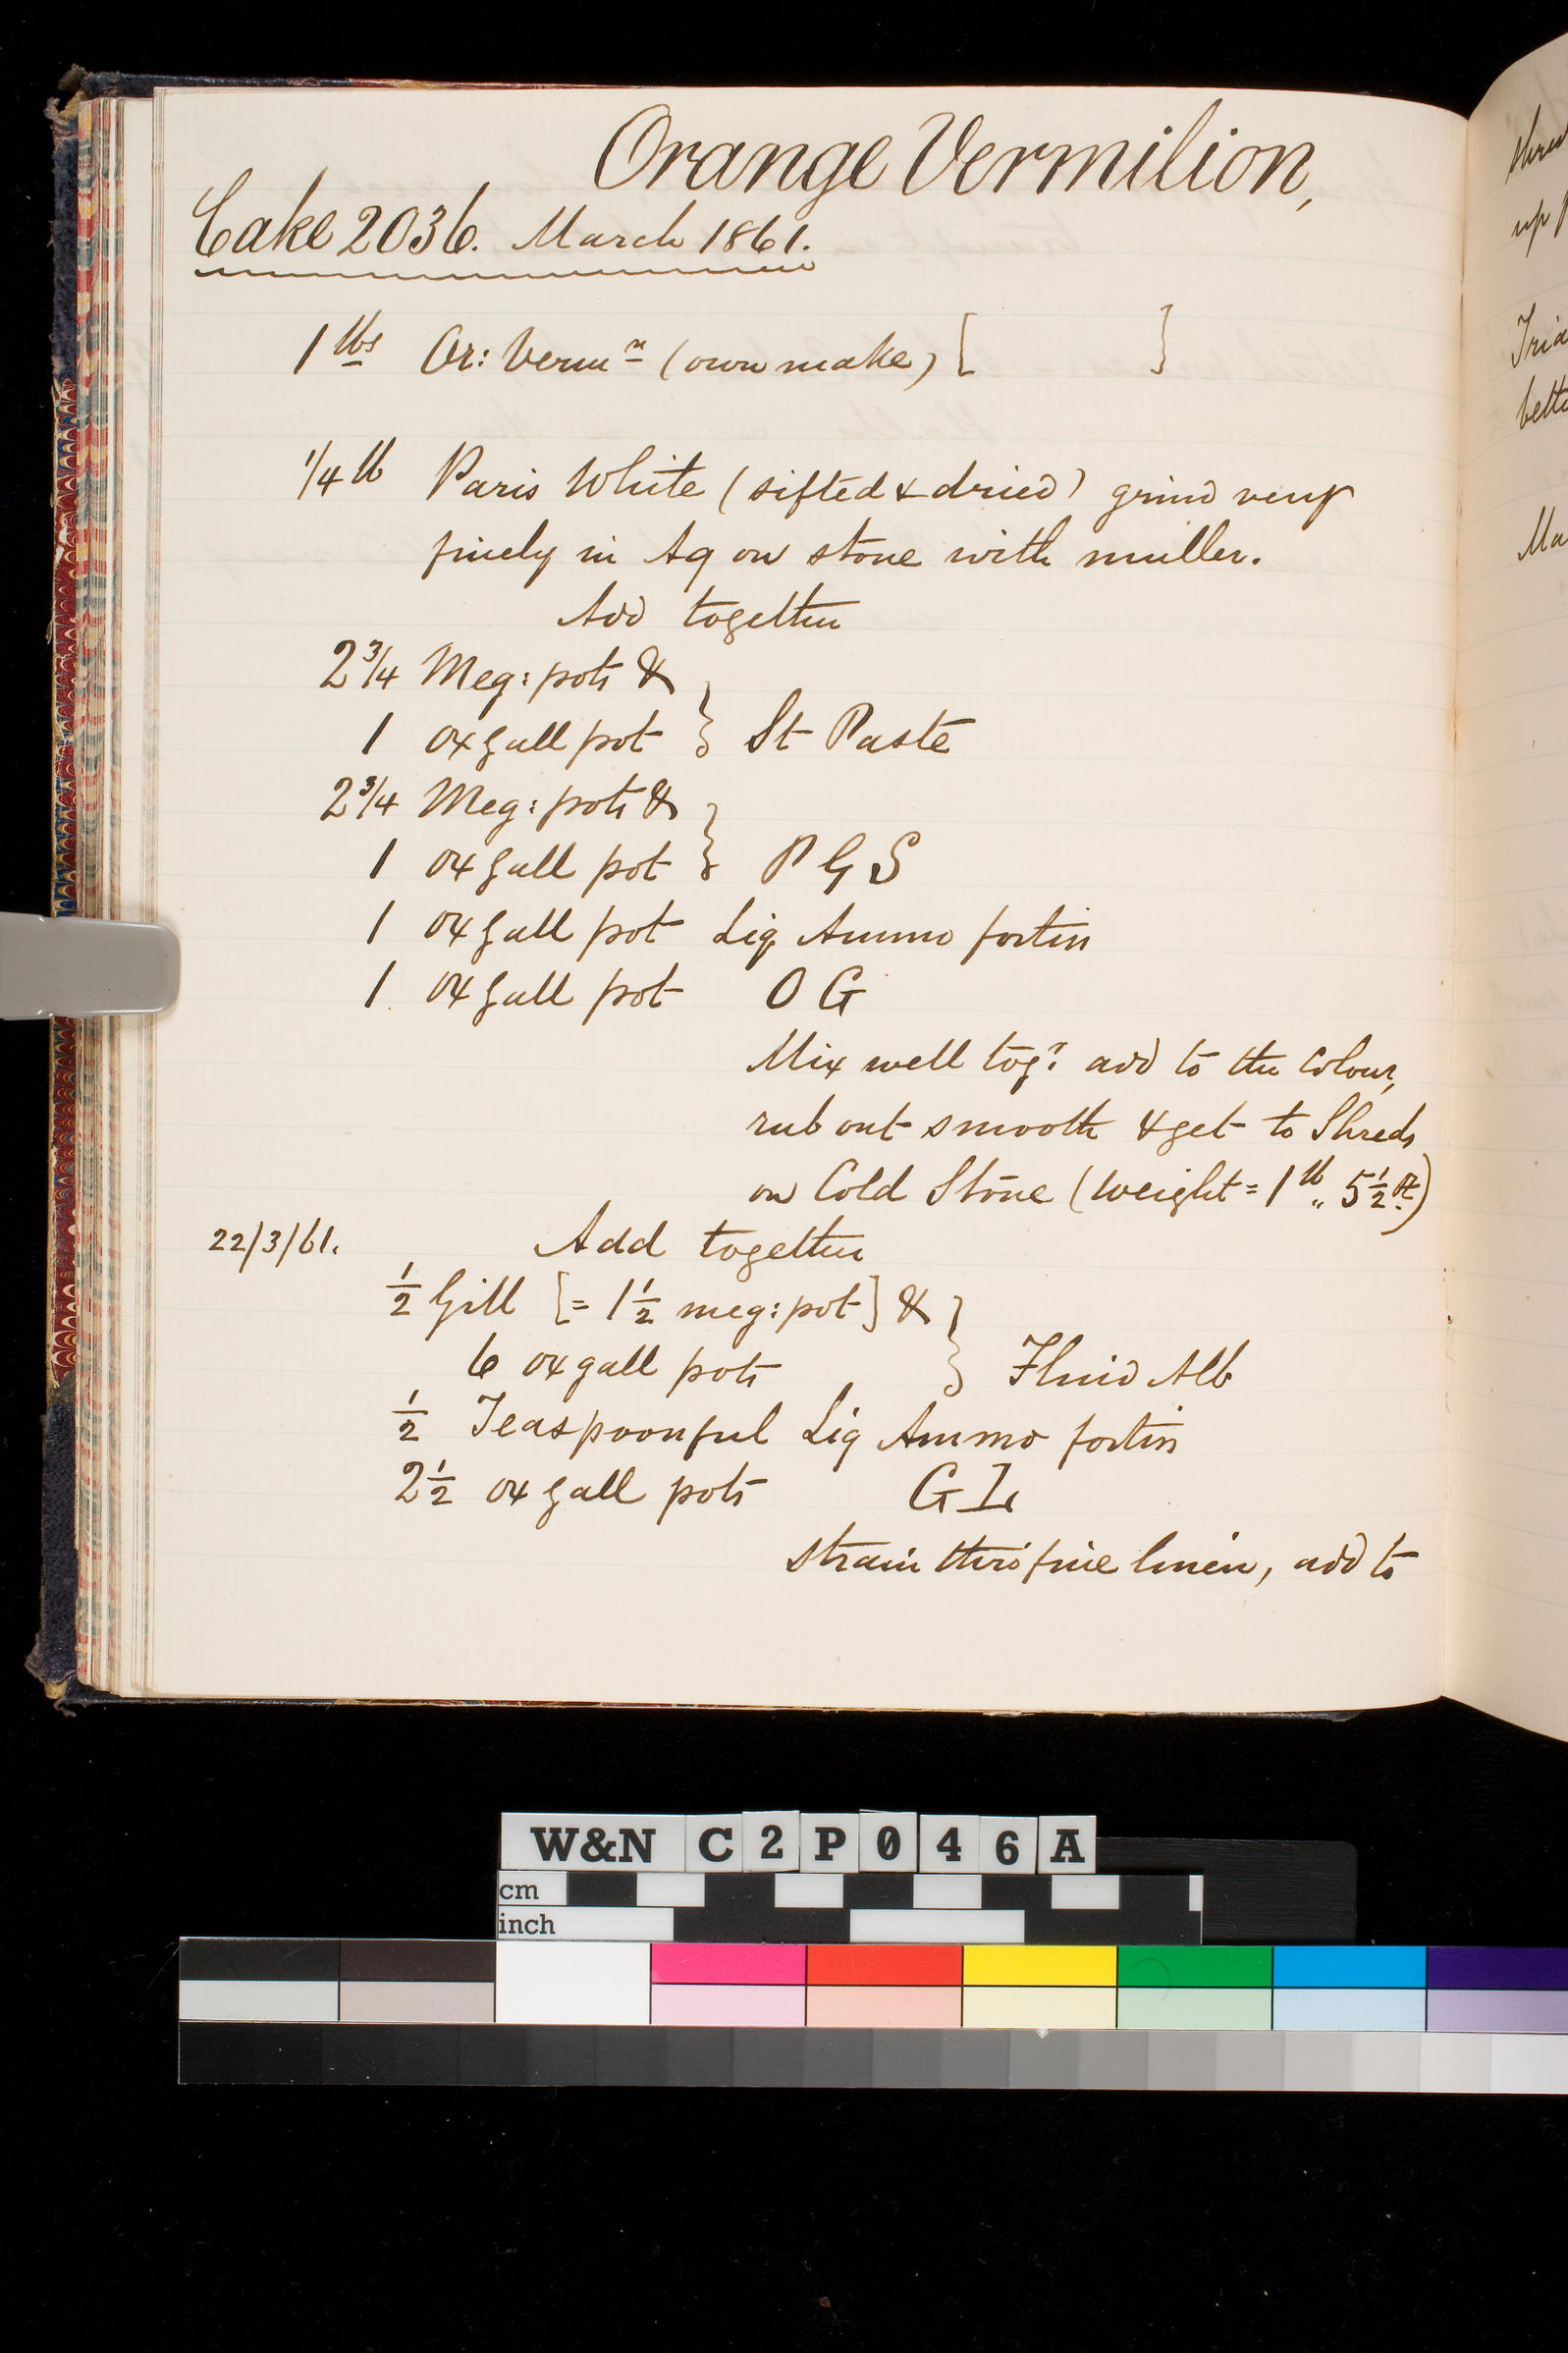 Orange Vermilion,
Cake 2036. March 1861.
1 lbs Or: Verm n (own make) [ ]
1/4 lb Paris White (sifted & dried) grind very
finely in Aq on stone with muller.
Add together
2 3/4 Meg: pots &
1 ox gall pot } St Paste
2 3/4 Meg: pots &
1 ox gall pot } P G S
1 ox gall pot Liq Ammo fortis
1 ox gall pot O G
Mix well togr add to the Colour,
rub out smooth & get to Shreds
on Cold Stone (weight = 1 lb „ 5 1/2 oz)
22/3/61. Add together
1/2 Gill [= 1 1/2 meg: pot] &
6 ox gall pots } Fluid Alb
1/2 Teaspoonful Liq Ammo fortis
2 1/2 ox gall pots G L
strain thro' fine linen, add to
up
W&N C2P046A
cm
inch